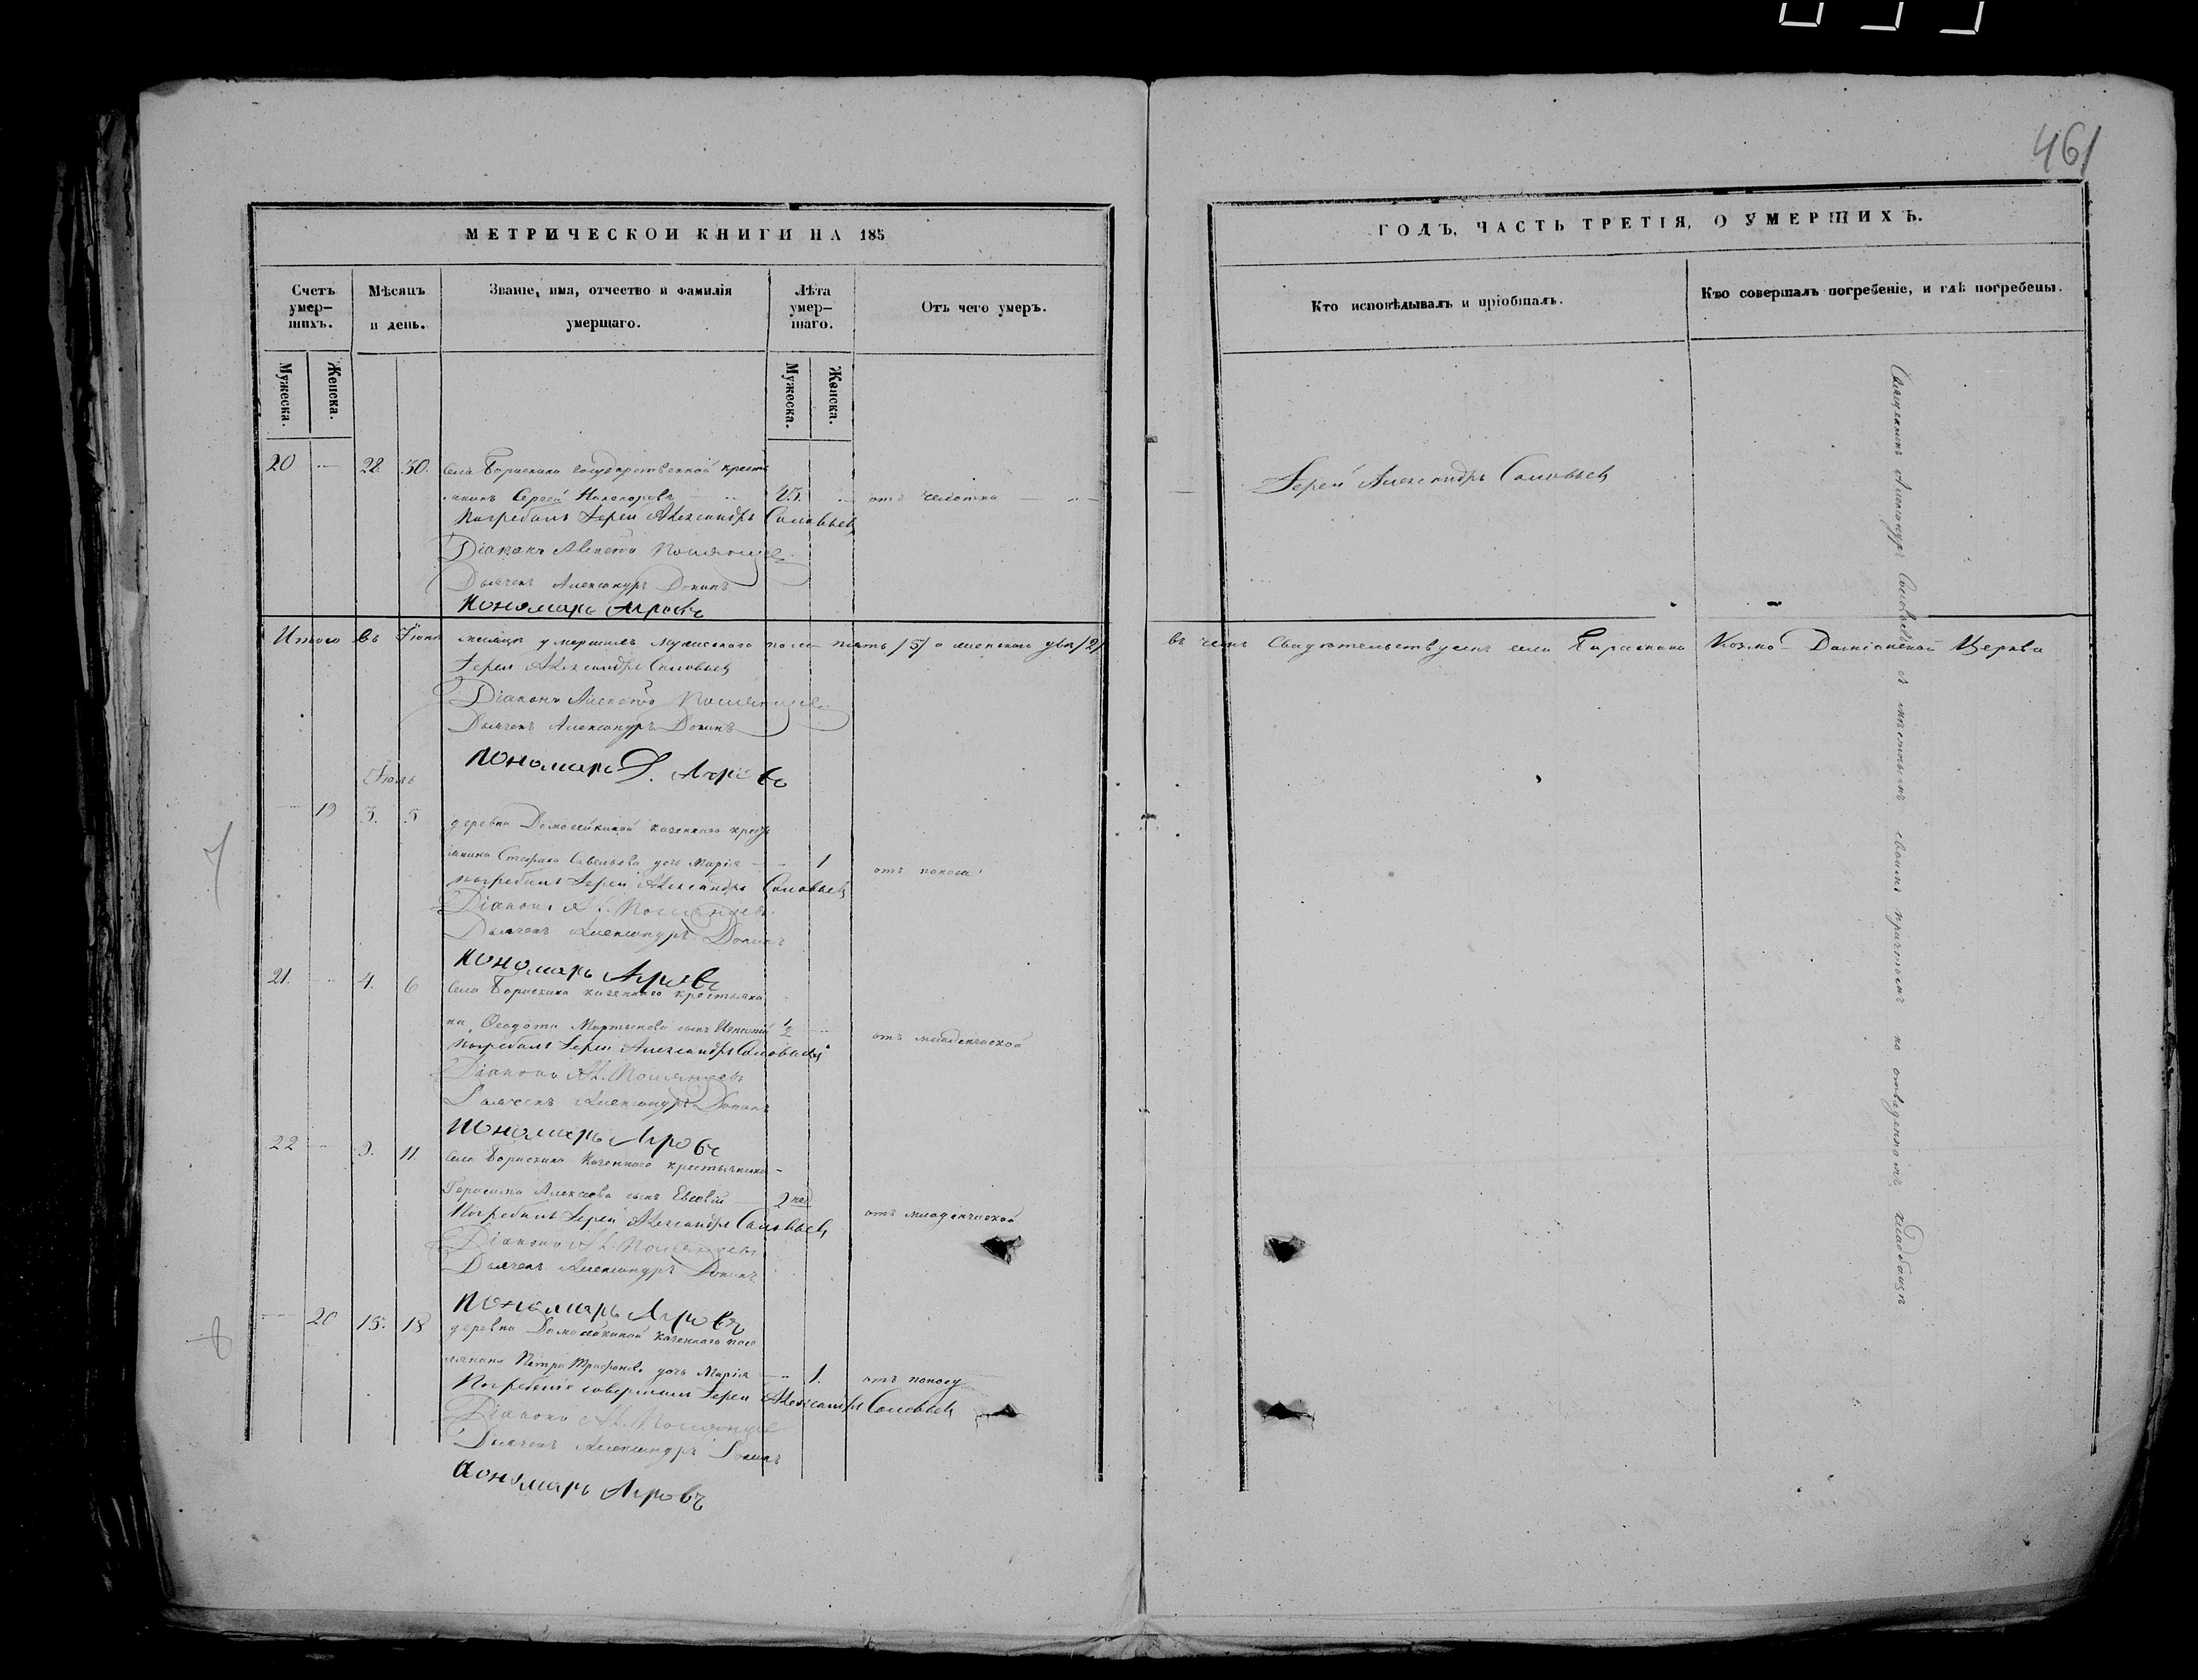 461
МЕТРИЧЕСКОЙ КНИГИ НА 185
ГОДЪ, ЧАСТЬ ТРЕТІЯ, О УМЕРШИХЪ.
Счетъ умер-
шихъ.
Мѣсяцъ
и день.
Званіе, имя, отчество и фамилія
умершаго.
Лѣта
умер-
шаго.
Отъ чего умеръ.
Кто исповѣдывалъ и пріобщалъ.
Кто совершалъ погребеніе, и гдѣ погребены.
Мужеска.
Женска.
Мужеска.
Женска.
20 28. 30. села Бораскина государственной кресть
янинъ Сергей Никифоровъ отъ чахотки
Іерей Александръ Соловьевъ
Погребалъ Іерей Александръ Соловьевъ
Діаконъ Алексѣй
Дьячекъ Александръ Донинъ
Пономарь Агровъ
Итого въ Іюнѣ месяцѣ умершихъ мужескаго пола пять /5/ а женскаго два /2/ въ чемъ свидѣтельствуемъ села Бараскина Козмо-Даміанской Церкви
Іерей Александръ Соловьевъ
Діаконъ Алексѣй
Дьячекъ Александръ Донинъ
Пономарь Агровъ
Іюль
19 3. 5 деревни казеннаго кресть
янина Стефана Савельева дочь Марія 1 отъ поноса
погребалъ Іерей Александръ Соловьевъ
Діаконъ Ал.
Дьячекъ Александръ Донинъ
Пономарь Агровъ
21. 4. 6 села Бораскина казеннаго крестьяни
на Ѳеодота Мартынова сынъ 1/2 отъ младенческой
погребалъ Іерей Александръ Соловьевъ
Діаконъ Ал.
Дьячекъ Александръ Донинъ
Пономарь Агровъ
22 9. 11 села Бораскина Казеннаго крестьянина
Герасима Алексѣева сынъ Евсевій 2 нед отъ младенческой
Погребалъ Іерей Александръ Соловьевъ
Діаконъ Ал.
Дьячекъ Александръ Донинъ
Пономарь Агровъ
20 15. 18 деревни казеннаго посе
лянина Петра Трифонова дочь Марія 1. отъ поносу
Погребеніе совершалъ Іерей Александръ Соловьевъ
Діаконъ Ал.
Дьячекъ Александръ Донинъ
Пономарь Агровъ
Священникъ Александръ Соловьевъ съ мѣстнымъ своимъ причтомъ на отведенномъ кладбищѣ
7
8